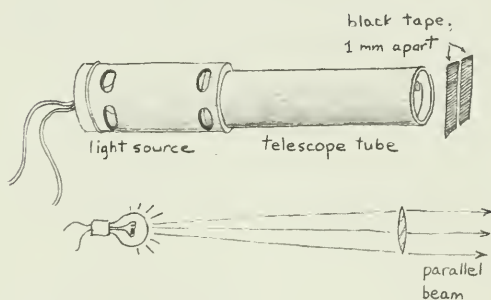 black tape,
1 mm apart
light source
telescope tube
parallel
beam